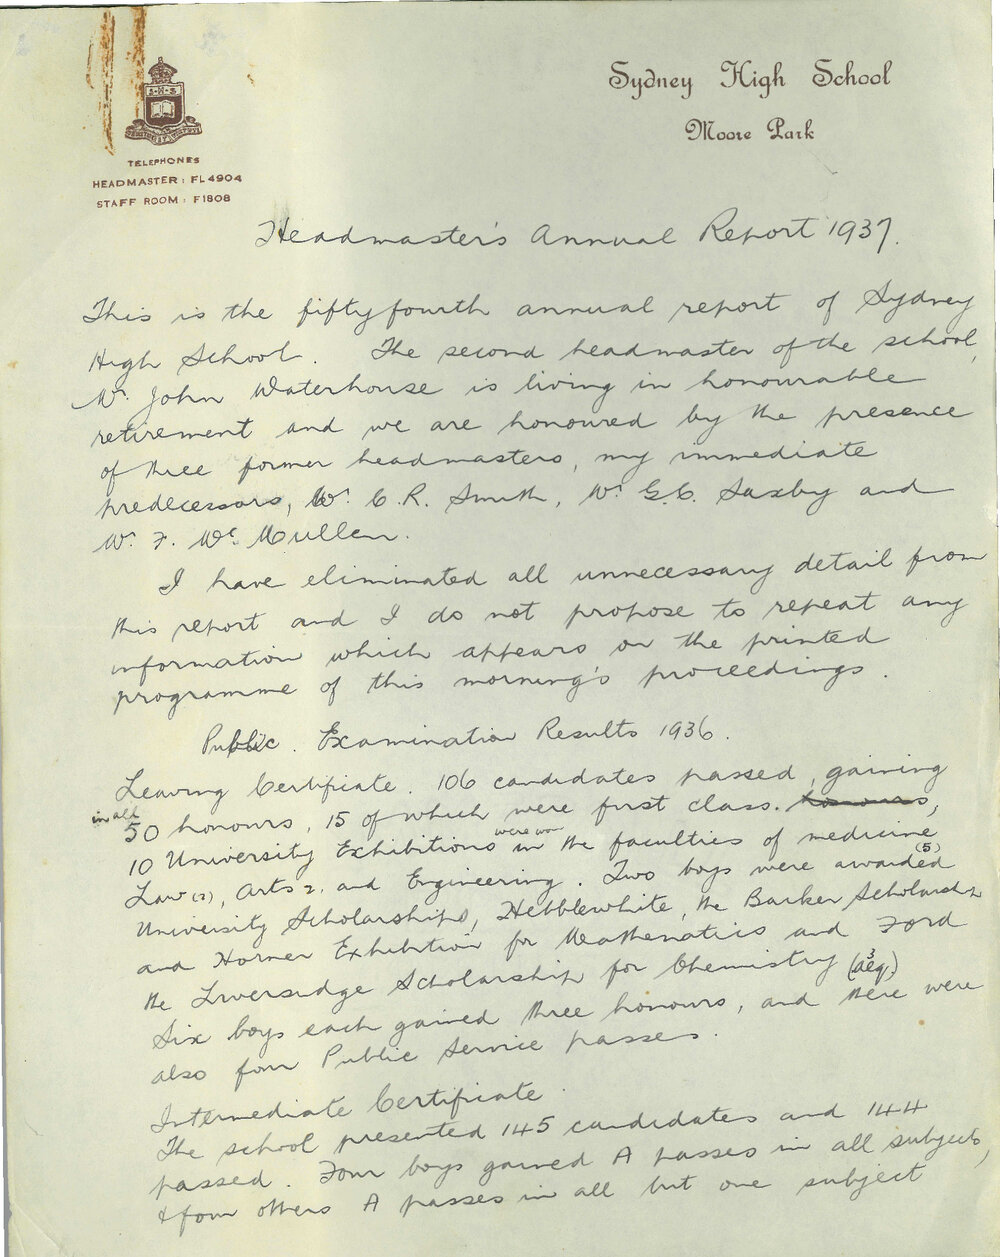 Sydney High School
Moore Park
S·H·S
TELEPHONES
HEADMASTER : FL4904
STAFF ROOM : F1808
Headmaster's Annual Report 1937.
This is the fiftyfourth annual report of Sydney
High School. The second headmaster of the school,
Mr. John Waterhouse is living in honourable
retirement and we are honoured by the presence
of three former headmasters, my immediate
predecessors, Mr. C.R. Smith, Mr G.C. Saxby and
Mr. F. McMullen.
I have eliminated all unnecessary detail from
this report and I do not propose to repeat any
information which appears on the printed
programme of this morning's proceedings.
Public. Examination Results 1936.
Leaving Certificate. 106 candidates passed, gaining
in all
50 honours, 15 of which were first class. honours,
were won
10 University Exhibitions in the faculties of medicine
(5)
Law (2), Arts 2, and Engineering. Two boys were awarded
University Scholarships, Hebblewhite, the Barker Scholarship
and Horner Exhibition for Mathematics and Ford
the Liversidge Scholarship for Chemistry (aeq.)
3
Six boys each gained three honours, and there were
also four Public Service passes.
Intermediate Certificate.
The school presented 145 candidates and 144
passed. Four boys gained A passes in all subjects,
& four others A passes in all but one subject